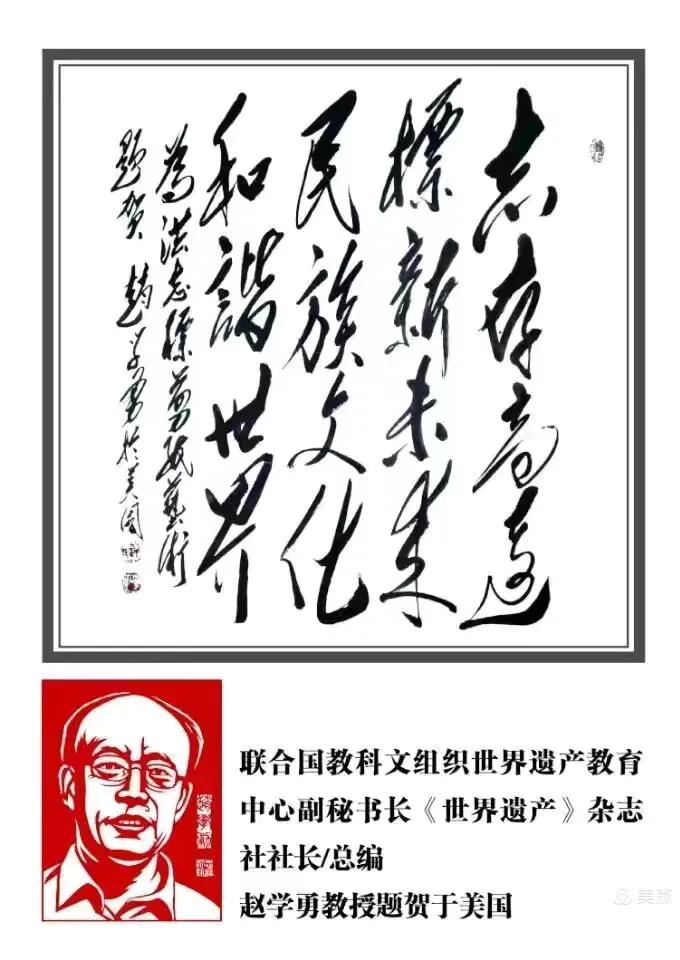 志存高远
标新未来
民族文化
和谐世界
为洪志标剪纸艺术
题贺 赵学勇於美国
联合国教科文组织世界遗产教育
中心副秘书长《世界遗产》杂志
社社长/总编
赵学勇教授题贺于美国
美篇